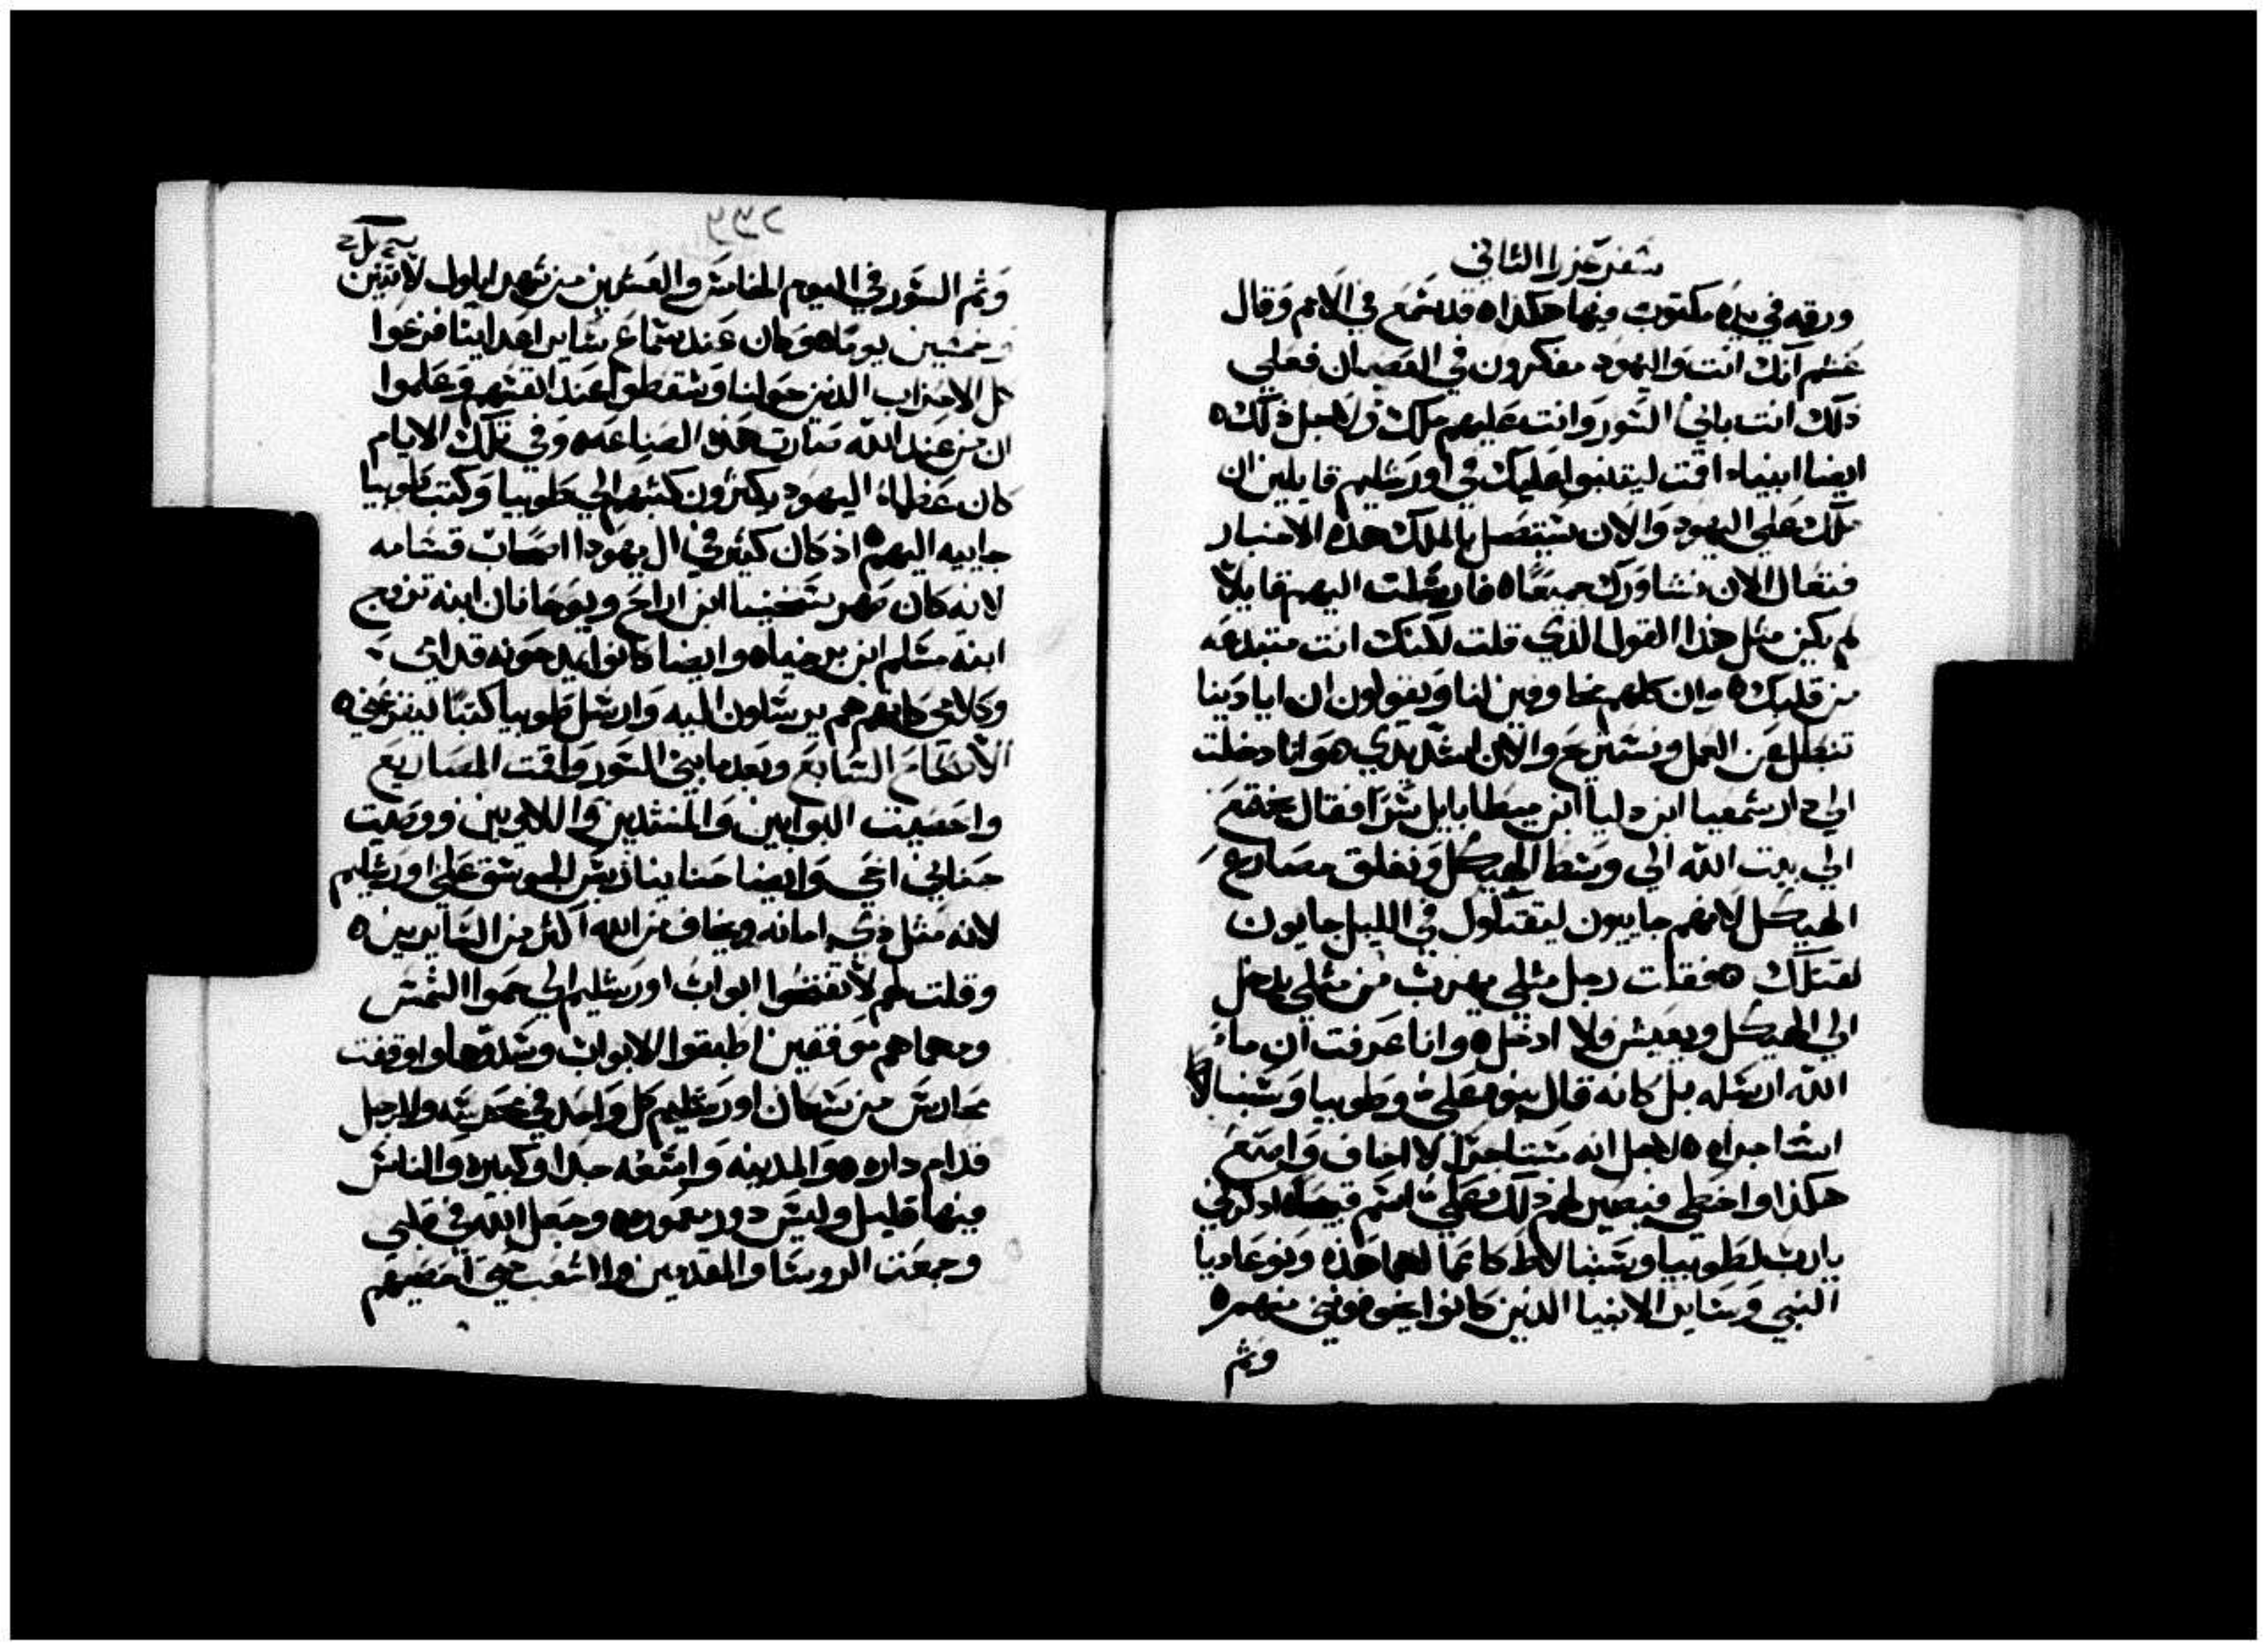 سفر عزرا الثاني
ورقه في يده مكتوب فيها هكذا ه قد سمع في الامم وقال
غشم انك انت واليهود مفكرون في العصيان فعلي
ذلك انت باني السور وانت عليهم ملك ولاجل ذلك ه
ايضا انبياء اقمت ليتنبوا عليك في اورشليم قايلين ان
ملك علي اليهود والان ستتصل بالملك هذه الاخبار
فتعال الان نتشاورك جميعا ه فارسلت اليهم قايلا
لم يكن مثل هذا القول الذي قلت لكنك انت مبتدعه
من قلبك ه وان كلهم مخاوفين لنا ويقولون ان ايادينا
تنبطل عن العمل ونستريح والان اشدد يدي ه وانا دخلت
الي دار سمعيا ابن دليا ابن ميطابايل سرا فقال نجتمع
الي بيت الله الي وسط الهيكل ونغلق مصاريع
الهيكل لانهم جاييون ليقتلوك في الليل جايون
لقتلك ه فقلت رجل مثلي يهرب من مثلي يدخل
الي الهيكل ويعيش ولا ادخل ه وانا عرفت ان ما
الله ارسله بل كانه قال بنوه علي وطوبيا وسنبالاط
استاجراه ه لاجل انه مستاجرا لا اخاف واصنع
هكذا واخطي فيصير لهم ذلك علي اسم قبيحا ه اذكرني
يارب لطوبيا وسنبالاط كاعمالهما هذه ونوعاديا
النبي وساير الانبيا الذين كانوا يخوفونني منهم ه
وتم
٢٣٢
وتم السور في اليوم الخامس والعشرين من شهر ايلول لاثنين
وخمسين يوما ه وكان عند سماع ساير اعداينا فزعوا
كل الاحزاب الذين حولنا وسقطوا عند انفسهم وعلموا
ان من عند الله صارت هذه الصناعه ه وفي تلك الايام
كان عظماء اليهود يكثرون كتبهم الي طوبيا وكتب طوبيا
جاييه اليهم ه اذ كان كثير في ال يهودا اصحاب قسامه
لانه كان صهر شخنيا ابن اراح ويوحانان ابنه تزوج
ابنة مسلم ابن برخيا ه وايضا كانوا يمدحونه قدامي
وكلامي كانوا هم يرسلون اليه وارسل طوبيا كتبا ليفزعني ه
الاصحاح السابع وبعد ما بني السور وطقت المصاريع
واحصيت البوابين والمنشدين واللاويين ووصيت
حناني اخي وايضا حنانيا ريس الجوسق علي اورشليم
لانه مثل ذي امانه ويخاف من الله اكثر من السايرين ه
وقلت لهم لا تفتحوا ابواب اورشليم الي حموا الشمس
ومهما هم موقفين اطبقوا الابواب وسدوها واوقفت
محارس من سكان اورشليم كل واحد في محرسته والرجل
قدام داره ه والمدينه واسعه جدا وكبيره والناس
فيها قليل وليس دور معموره ه وجعل الله في قلبي
وجمعت الروسا والمقدمين والشعب حتي احصيهم